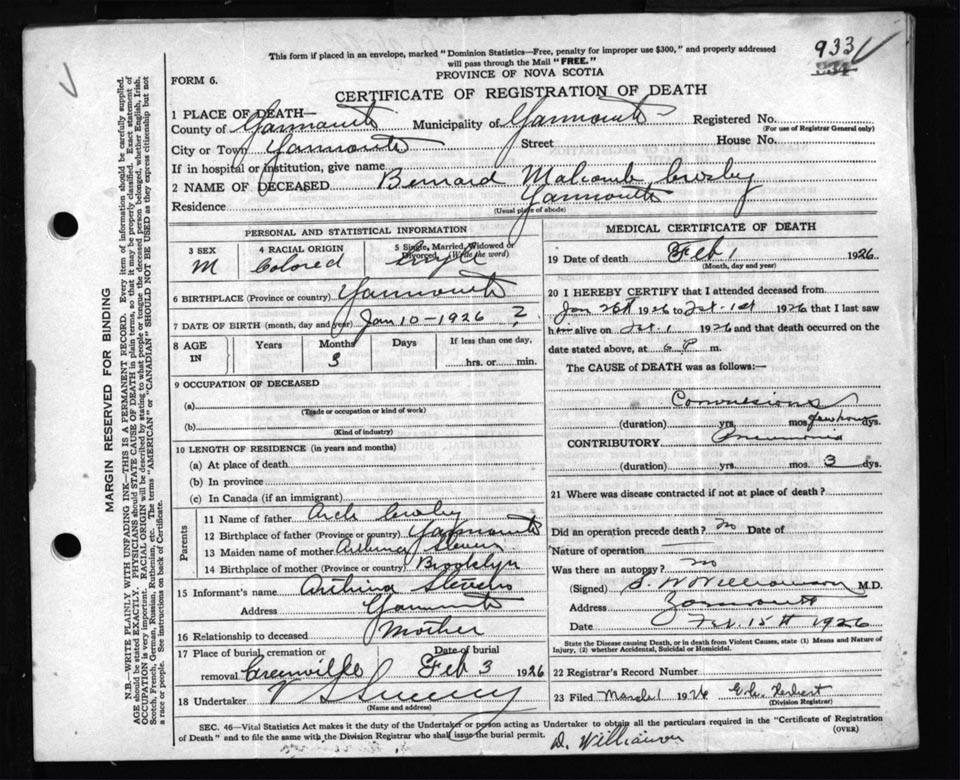 This form if placed in an envelope, marked "Dominion Statistics—Free, penalty for improper use $300," and properly addressed
will pass through the Mail "FREE."
933
234
PROVINCE OF NOVA SCOTIA
FORM 6.
CERTIFICATE OF REGISTRATION OF DEATH
1 PLACE OF DEATH—
County of Yarmouth Municipality of Yarmouth Registered No.
(For use of Registrar General only)
City or Town Yarmouth Street House No.
If in hospital or institution, give name
2 NAME OF DECEASED Bernard Malcomb Crosby
Residence Yarmouth
(Usual place of abode)
PERSONAL AND STATISTICAL INFORMATION
3 SEX 4 RACIAL ORIGIN 5 Single, Married, Widowed or Divorced. (Write the word)
M Colored Single
6 BIRTHPLACE (Province or country) Yarmouth
7 DATE OF BIRTH (month, day and year) Jan 10-1926 ?
8 AGE IN Years Months Days If less than one day,
3 hrs. or min.
9 OCCUPATION OF DECEASED
(a)
(Trade or occupation or kind of work)
(b)
(Kind of industry)
10 LENGTH OF RESIDENCE (in years and months)
(a) At place of death
(b) In province
(c) In Canada (if an immigrant)
Parents
11 Name of father Arch Crosby
12 Birthplace of father (Province or country) Yarmouth
13 Maiden name of mother Stevens
14 Birthplace of mother (Province or country) Brooklyn
15 Informant's name Stevens
Address Yarmouth
16 Relationship to deceased Mother
17 Place of burial, cremation or removal Greenville Date of burial Feb 3 1926
18 Undertaker V S Sweeny
(Name and address)
MEDICAL CERTIFICATE OF DEATH
19 Date of death Feb 1 1926
(Month, day and year)
20 I HEREBY CERTIFY that I attended deceased from
Jan 26th 1926 to Feb. 1st 1926 that I last saw
him alive on Feb. 1 1926 and that death occurred on
date stated above, at 6 P. m.
The CAUSE of DEATH was as follows:—
Convulsions
(duration) yrs. mos. few hours dys.
CONTRIBUTORY Pneumonia
(duration) yrs. mos. 3 dys.
21 Where was disease contracted if not at place of death?
Did an operation precede death? No Date of
Nature of operation
Was there an autopsy? No
(Signed) S. W. Williamson M.D.
Address Yarmouth
Date Feb. 15th 1926
State the Disease causing Death, or in death from Violent Causes, state (1) Means and Nature of
Injury, (2) whether Accidental, Suicidal or Homicidal.
22 Registrar's Record Number
23 Filed March 1 1926 E. C. Herbert
(Division Registrar)
SEC. 46—Vital Statistics Act makes it the duty of the Undertaker or person acting as Undertaker to obtain all the particulars required in the "Certificate of Registration
of Death" and to file the same with the Division Registrar who shall issue the burial permit.
(OVER)
D. Williamson
MARGIN RESERVED FOR BINDING
N.B.—WRITE PLAINLY WITH UNFADING INK—THIS IS A PERMANENT RECORD. Every item of information should be carefully supplied.
AGE should be stated EXACTLY. PHYSICIANS should STATE CAUSE OF DEATH in plain terms, so that it may be properly classified. Exact statement of
OCCUPATION is very important. RACIAL ORIGIN will be described by stating to what people or tongue the deceased person belonged, whether English, Irish,
Scotch, French, German, Russian, Ruthenian, etc. The terms "AMERICAN" or "CANADIAN" SHOULD NOT BE USED as they express citizenship but not
a race or people. See instructions on back of Certificate.